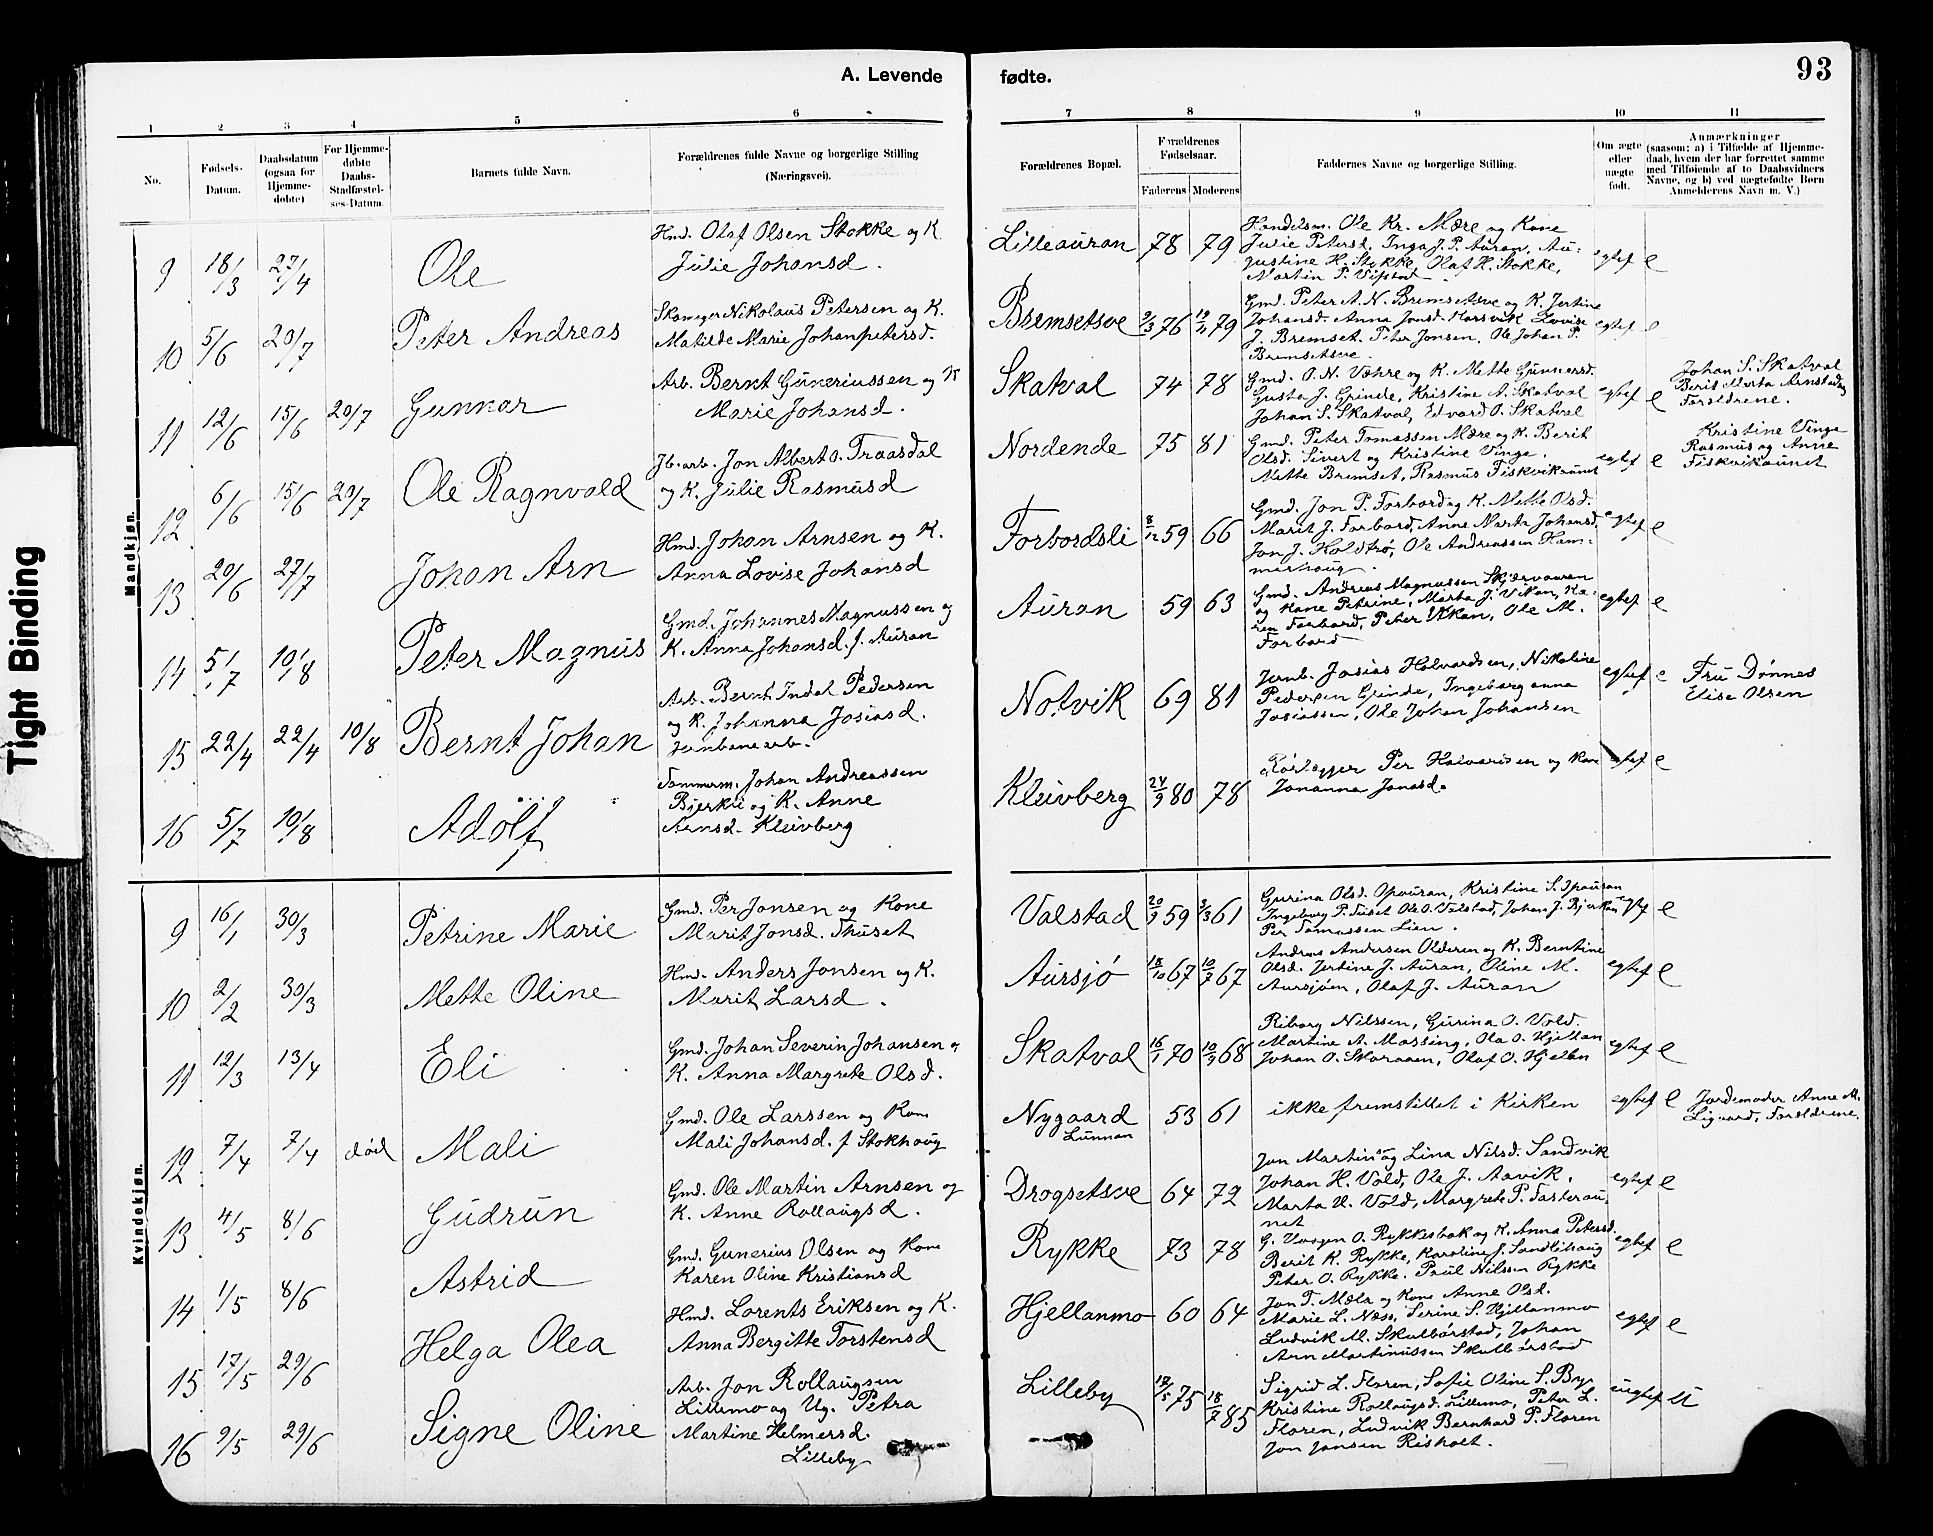 A. Levende
fødte.
93
1 2 3 4 5 6 7 8 9 10 11
No.
Fødsels-Datum.
Daabsdatum (ogsaa for Hjemme-døbte)
For Hjemme-døbte Daabs-Stadfæstel-ses-Datum.
Barnets fulde Navn.
Forældrenes fulde Navne og borgerlige Stilling (Næringsvei).
Forældrenes Bopæl.
Forældrenes Fødselsaar.
Faderens Moderens
Faddernes Navne og borgerlige Stilling.
Om ægte eller uægte født.
Anmærkninger (saasom: a) i Tilfælde af Hjemme-daab, hvem der har forrettet samme med Tilføiende af to Daabsvidners Navne, og b) ved uægtefødte Børn Anmelderens Navn m. V.)
Tight Binding
Mandkjøn.
9 18/3 27/4 Ole
Hmd. Olaf Olsen Stokke og K.
Julie Johansd.
Lilleauran 78 79
Handelsm. Ole Kr. Mære og Kone
Julie Petersd, Inga J. P. Auran, Au-
gustine H. Stokke, Olaf H. Stokke,
Martin P. Vifstad
egtef e
10 5/6 20/7 Peter Andreas
Skomager Nikolaus Petersen og K.
Matilde Marie Johanpetersd.
Bremsetsve 2/3 76 12/4 79
Gmd. Peter A. N. Bremsetsve og K. Jertine
Johansd. Anna Jonsd. Horsvik Lovise
J. Bremset. Peter Jonsen, Ole Johan P.
Bremsetsve.
egtef e
11 12/6 15/6 20/7 Gunnar
Arb. Bernt Guneriussen og K
Marie Johansd.
Skatval 74 78
Gmd. O. N. Væhre og K. Mette Gunnersd.
Gusta J. Grinde, Kristine A. Skatval
Johan S. Skatval, Edvard O. Skatval
egtef e
Johan S. Skatval
Berit Marta Arnstad og
Forældrene.
12 6/6 15/6 20/7 Ole Ragnvald
Jb.arb. Jon Albert O. Fraasdal
og K. Julie Rasmusd
Nordende 75 81
Gmd. Peter Tomassen Mære og K. Berit
Olsd. Sivert og Kristine Vinge.
Mette Bremset, Rasmus Fiskvikaunet
egtef e
Kristine Vinge
Rasmus og Anne
Fiskvikaunet
13 20/6 27/7 Johan Arn
Hmd. Johan Arnsen og K.
Anna Lovise Johansd
Forbordsli 8/12 59 66
Gmd. Jon P. Forbord og K. Mette Olsd.
Marit J. Forbord, Anne Marta Johansd,
Jon J. Holdtrø, Ole Andreassen Ham-
merhaug.
egtef e
14 5/7 10/8 Peter Magnus
Gmd. Johannes Magnussen og
K. Anna Johansd. f. Auran
Auran 59 63
Gmd. Andreas Magnussen Skjervauran
og Kone Petrine, Marta J. Viken, Ka-
ren Forbord, Peter Vikan, Ole M.
Forbord
egtef e
15 22/4 22/4 10/8 Bernt Johan
Arb. Bernt Indal Pedersen
og K. Johanna Josiasd.
Jernbanearb.
Notvik 69 81
Jernb. Josias Halvardsen, Nikoline
Pedersen Grinde, Ingeborganna
Josiassen, Ole Johan Johansen
egtef e
Fru Dønnes
Elise Olsen
16 5/7 10/8 Adolf
Tommerm. Johan Andreassen
Bjerkli og K. Anne
Arnsd. Kleivberg
Kleivberg 24/9 80 78
Rørlegger Per Halvarisen og Kone
Johanna Jonasd.
egtef e
Kvindekjøn.
9 16/1 30/3 Petrine Marie
Gmd. Per Jonsen og Kone
Marit Jonsd. Thuset
Valstad 20/9 59 2/3 61
Gurina Olsd. Opauran, Kristine S. Opauran
Ingeborg P. Tuset Ole O. Valstad, Johan J. Bjerkan
Per Tomassen Lien.
egtef e
10 2/2 30/3 Mette Oline
Hmd. Anders Jonsen og K.
Marit Larsd.
Aursjø 18/10 67 10/7 67
Andreas Andersen Olderen og K. Berntine
Olsd. Jertine J. Auran, Oline M.
Aursjøen, Olaf J. Auran
egtef e
11 12/3 13/4 Eli
Gmd. Johan Severin Johansen og
K. Anna Margrete Olsd.
Skatval 16/1 70 10/9 68
Riborg Nilssen, Gurina O. Vold.
Martine A. Massing, Ola O. Hjellan
Johan O. Skaraaen, Olaf O. Hjellan
egtef e
12 7/4 7/4 død Mali
Gmd. Ole Larssen og Kone
Mali Johansd. f Stokhaug
Nygaard
Lunnan
53 61
ikke fremstillet i Kirken
egtef e
Jordemoder Anne M.
Ligaard, Forældrene.
13 4/5 8/6 Gudrun
Gmd. Ole Martin Arnsen og
K. Anne Rollaugsd.
Drogsetsve 64 72
Jon Martin og Lina Nilsd. Sandvik
Johan H. Vold, Ole J. Aavik,
Marta H. Vold, Margrete P. Fasterau-
net
egtef e
14 1/5 8/6 Astrid
Gmd. Gunerius Olsen og Kone
Karen Oline Kristiansd
Rykke 73 78
G. O. Rykkesbak og K. Anna Petersd.
Berit K. Rykke, Karoline J. Sandlihaug
Peter O. Rykke. Paul Nilssen Rykke
egtef e
15 17/5 29/6 Helga Olea
Hmd. Lorents Eriksen og K.
Anna Bergitte Torstensd
Hjellanmo 60 64
Jon T. Mæla og Kone Anne Olsd.
Marie L. Næss, Serine S. Hjellanmo
Ludvik M. Skulbørstad, Johan
Arn Martinussen Skulbørstad
egtef e
16 9/5 29/6 Signe Oline
Arb. Jon Rollaugsen
Lillemo og Ug. Petra
Martine Helmersd.
Lilleby
Lilleby 12/5 75 18/7 85
Sigrid L. Floren, Sofie Oline S. By
Kristine Rollaugsd. Lillemo, Peter L.
Floren, Ludvik Bernhard P. Floren
Jon Jonsen Risholt.
uegtef u